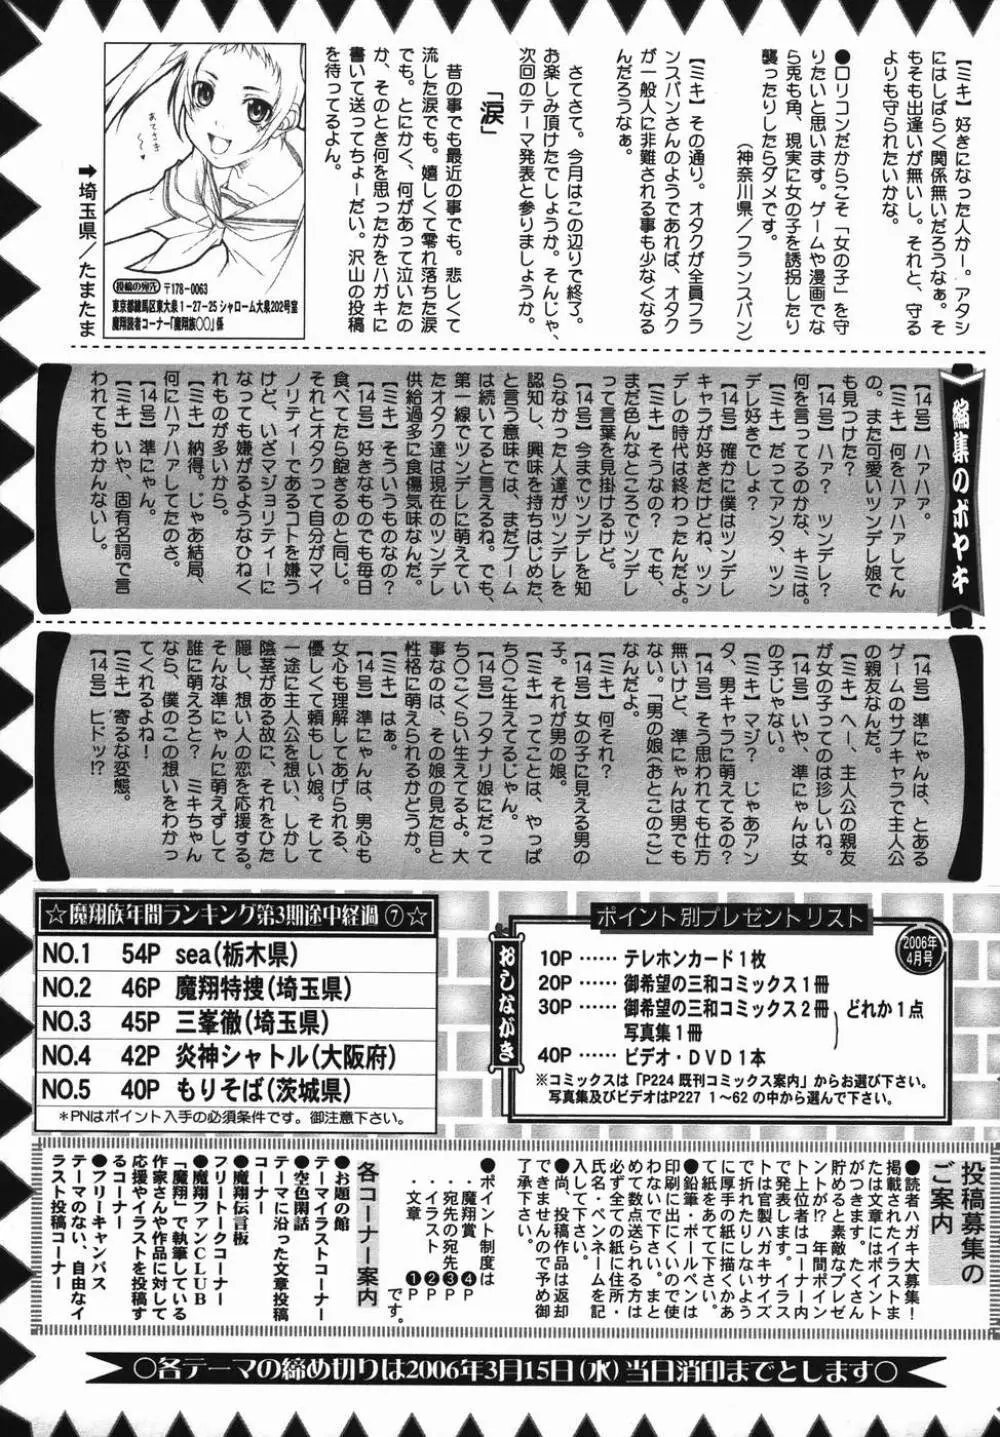 【ミキ】好きになった人かー。アタシ
にはしばらく関係無いだろうなぁ。そ
もそも出逢いが無いし。それと、守る
よりも守られたいかな。
●ロリコンだからこそ「女の子」を守
りたいと思います。ゲームや漫画でな
ら兎も角、現実に女の子を誘拐したり
襲ったりしたらダメです。
（神奈川県／フランスパン）
【ミキ】その通り。オタクが全員フラ
ンスパンさんのようであれば、オタク
が一般人に非難される事も少なくなる
んだろうなぁ。
さてさて。今月はこの辺りで終了。
お楽しみ頂けたでしょうか。そんじゃ、
次回のテーマ発表と参りましょうか。
「涙」
昔の事でも最近の事でも。悲しくて
流した涙でも。嬉しくて零れ落ちた涙
でも。とにかく、何があって泣いたの
か、そのとき何を思ったかをハガキに
書いて送ってちょーだい。沢山の投稿
を待ってるよん。
あてさき
➡埼玉県／たまたま
投稿の宛先 〒178-0063
東京都練馬区東大泉1-27-25 シャローム大泉202号室
魔翔読者コーナー「魔翔族○○」係
編集のボヤキ
【14号】ハァハァ。
【ミキ】何をハァハァしてん
の。また可愛いツンデレ娘で
も見つけた？
【14号】ハァ？　ツンデレ？
何を言ってるのかな、キミは。
【ミキ】だってアンタ、ツン
デレ好きでしょ？
【14号】確かに僕はツンデレ
キャラが好きだけどね、ツン
デレの時代は終わったんだよ。
【ミキ】そうなの？　でも、
まだ色んなところでツンデレ
って言葉を見掛けるけど。
【14号】今までツンデレを知
らなかった人達がツンデレを
認知し、興味を持ちはじめた、
と言う意味では、まだブーム
は続いてると言えるね。でも、
第一線でツンデレに萌えてい
たオタク達は現在のツンデレ
供給過多に食傷気味なんだ。
【ミキ】そういうものなの？
【14号】好きなものでも毎日
食べてたら飽きるのと同じ。
それとオタクって自分がマイ
ノリティーであるコトを嫌う
けど、いざマジョリティーに
なっても嫌がるようなひねく
れものが多いから。
【ミキ】納得。じゃあ結局、
何にハァハァしてたのさ。
【14号】準にゃん。
【ミキ】いや、固有名詞で言
われてもわかんないし。
【14号】準にゃんは、とある
ゲームのサブキャラで主人公
の親友なんだ。
【ミキ】へー、主人公の親友
が女の子ってのは珍しいね。
【14号】いや、準にゃんは女
の子じゃない。
【ミキ】マジ？　じゃあアン
タ、男キャラに萌えてるの？
【14号】そう思われても仕方
無いけど、準にゃんは男でも
ない。「男の娘（おとこのこ）」
なんだよ。
【ミキ】何それ？
【14号】女の子に見える男の
子。それが男の娘。
【ミキ】ってことは、やっぱ
ち○こ生えてるじゃん。
【14号】フタナリ娘にだって
ち○こくらい生えてるよ。大
事なのは、その娘の見た目と
性格に萌えられるかどうか。
【ミキ】はぁ。
【14号】準にゃんは、男心も
女心も理解してあげられる、
優しくて頼もしい娘。そして
一途に主人公を想い、しかし
陰茎がある故に、それをひた
隠し、想い人の恋を応援する。
そんな準にゃんに萌えずして
誰に萌えろと？　ミキちゃん
なら、僕のこの想いをわかっ
てくれるよね！
【ミキ】寄るな変態。
【14号】ヒドッ!?
☆魔翔族年間ランキング第3期途中経過⑦☆
NO.1　54P　sea（栃木県）
NO.2　46P　魔翔特捜（埼玉県）
NO.3　45P　三峯徹（埼玉県）
NO.4　42P　炎神シャトル（大阪府）
NO.5　40P　もりそば（茨城県）
＊PNはポイント入手の必須条件です。御注意下さい。
ポイント別プレゼントリスト
2006年4月号
おしながき
10P …… テレホンカード1枚
20P …… 御希望の三和コミックス1冊
30P …… 御希望の三和コミックス2冊　どれか1点
写真集1冊
40P …… ビデオ・DVD1本
※コミックスは「P224 既刊コミックス案内」からお選び下さい。
写真集及びビデオはP227 1～62の中から選んで下さい。
投稿募集の
ご案内
●読者ハガキ大募集！
掲載されたイラストま
たは文章にはポイント
がつきます。たくさん
貯めると素敵なプレゼ
ントが!?　年間ポイン
ト上位者はコーナー内
で発表します。イラス
トは官製ハガキサイズ
で折れたりしないよう
に厚手の紙に描くかあ
て紙をあてて下さい。
●鉛筆・ボールペンは
印刷に出にくいので使
わないで下さい。まと
めて数点送られる方は
必ず全ての紙に住所・
氏名・ペンネームを記
入して下さい。
●尚、投稿作品は返却
できませんので予め御
了承下さい。
●ポイント制度は
・魔翔賞　❹P
・宛先の宛先❸P
・イラスト　❷P
・文章　❶P
です。
各コーナー案内
●お題の館
テーマイラストコーナー
●空色閑話
テーマに沿った文章投稿
コーナー
●魔翔伝言板
フリートークコーナー
●魔翔ファンCLUB
「魔翔」で執筆している
作家さんや作品に対して
応援やイラストを投稿す
るコーナー
●フリーキャンバス
テーマのない、自由なイ
ラスト投稿コーナー
○各テーマの締め切りは2006年3月15日（水）当日消印までとします○